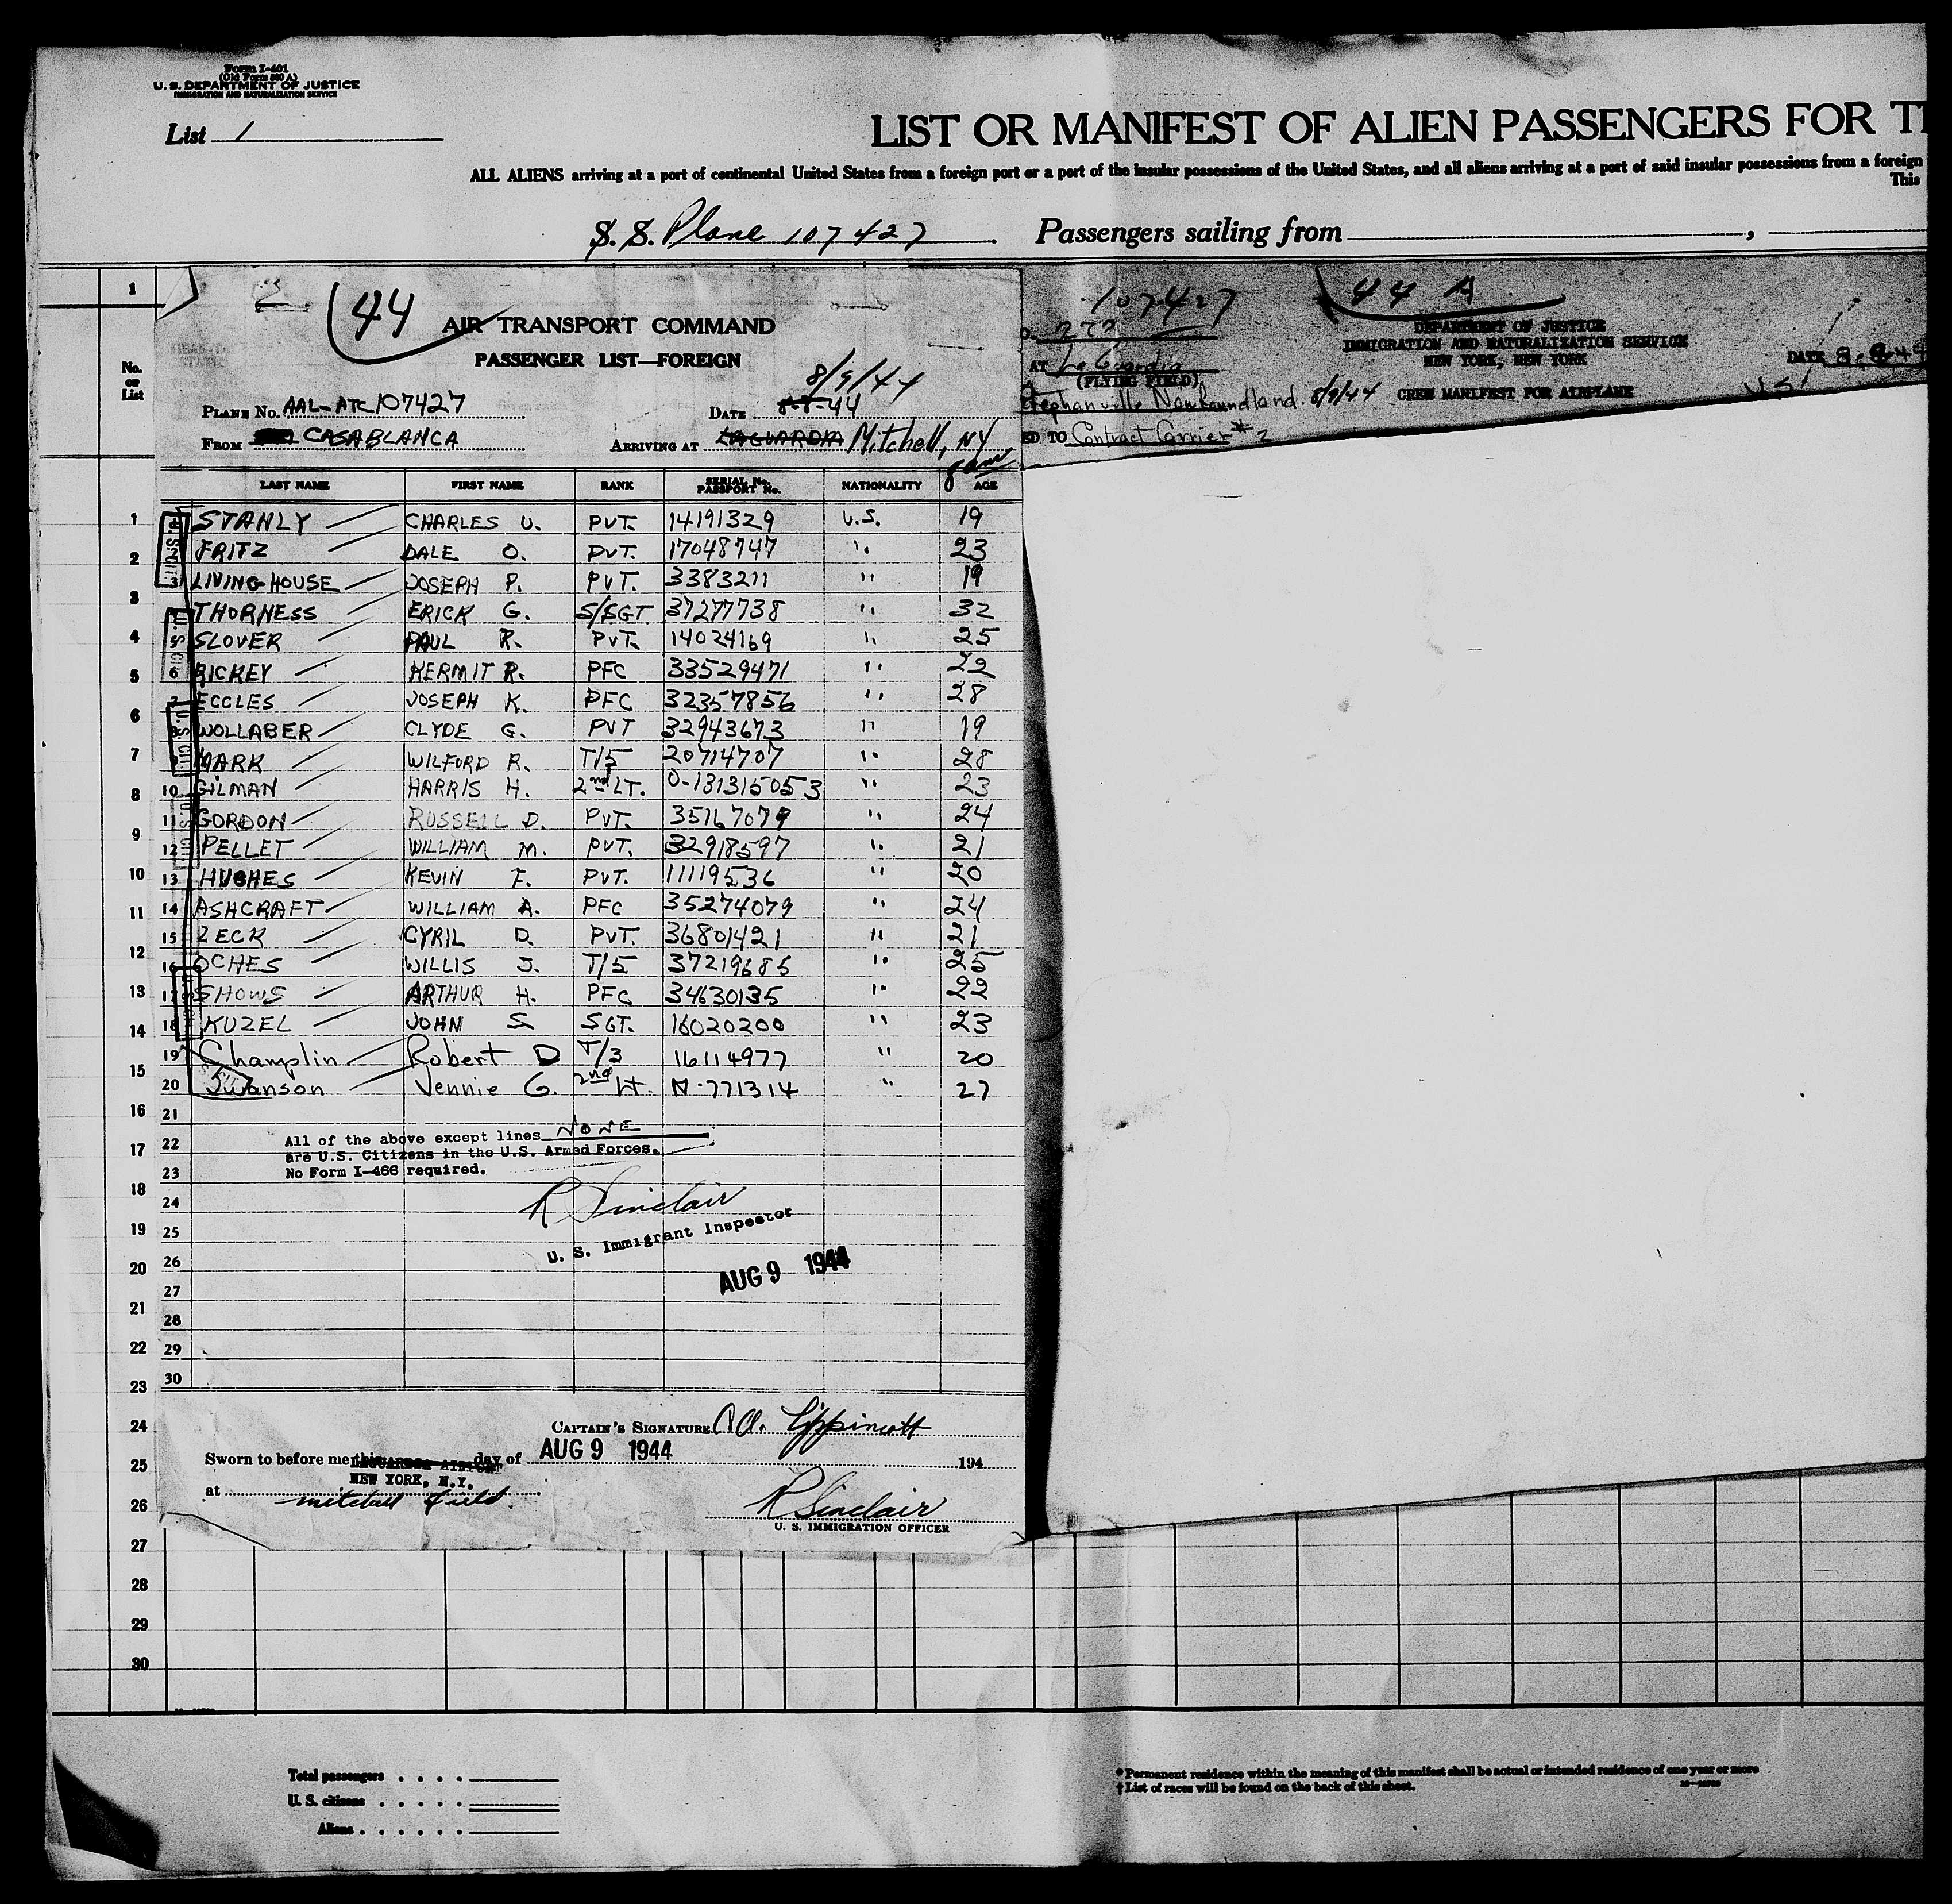 Form I-401
(Old Form 500 A)
U. S. DEPARTMENT OF JUSTICE
IMMIGRATION AND NATURALIZATION SERVICE
List 1
LIST OR MANIFEST OF ALIEN PASSENGERS FOR T
ALL ALIENS arriving at a port of continental United States from a foreign port or a port of the insular possessions of the United States, and all aliens arriving at a port of said insular possessions from a foreign
This
S. S. Plane 107427 Passengers sailing from
1
No. on List
44
AIR TRANSPORT COMMAND
PASSENGER LIST—FOREIGN
8/9/44
PLANE No. AAL-ATC 107427 DATE 8-8-44
FROM CASABLANCA ARRIVING AT LAGUARDIA Mitchell, NY
107427 44 A
277
DEPARTMENT OF JUSTICE
IMMIGRATION AND NATURALIZATION SERVICE
NEW YORK, NEW YORK
AT La Guardia
(FLYING FIELD)
DATE
Stephanville Newfoundland 8/9/44 CREW MANIFEST FOR AIRPLANE
ED TO Contract Carrier #2
LAST NAME FIRST NAME RANK SERIAL No. PASSPORT No. NATIONALITY AGE
1 STANLY CHARLES U. PVT. 14191329 U.S. 19
2 FRITZ DALE O. PVT. 17048747 " 23
3 LIVINGHOUSE JOSEPH P. PVT. 3383211 " 19
THORNESS ERICK G. S/SGT 37277738 " 32
5 SLOVER PAUL R. PVT. 14024169 " 25
6 RICKEY KERMIT R. PFC 33529471 " 22
7 ECCLES JOSEPH K. PFC 32357856 " 28
WOLLABER CLYDE G. PVT 32943673 " 19
MARK WILFORD R. T/5 20714707 " 28
10 GILMAN HARRIS H. 2nd LT. O-131315053 " 23
11 GORDON RUSSELL D. PVT. 35167079 " 24
12 PELLET WILLIAM M. PVT. 32918597 " 21
13 HUGHES KEVIN F. PVT. 11119536 " 20
14 ASHCRAFT WILLIAM A. PFC 35274079 " 24
15 ZECK CYRIL D. PVT. 36801421 " 21
16 OCHES WILLIS J. T/5 37219685 " 25
17 SHOWS ARTHUR H. PFC 34630135 " 22
18 KUZEL JOHN S. SGT. 16020200 " 23
19 Champlin Robert D T/3 16114977 " 20
20 Swanson Jennie G. 2nd Lt. N-771314 " 27
21
22
23
24
25
26
27
28
29
30
All of the above except lines NONE
are U.S. Citizens in the U.S. Armed Forces.
No Form I-466 required.
R Sinclair
U. S. Immigrant Inspector
AUG 9 1944
CAPTAIN'S SIGNATURE Lippincott
Sworn to before me this day of AUG 9 1944 194
LAGUARDIA AIRPORT
NEW YORK, N.Y.
at mitchell field.
R Sinclair
U. S. IMMIGRATION OFFICER
1
2
3
4
5
6
7
8
9
10
11
12
13
14
15
16
17
18
19
20
21
22
23
24
25
26
27
28
29
30
Total passengers
U. S. citizens
Aliens
* Permanent residence within the meaning of this manifest shall be actual or intended residence of one year or more
† List of races will be found on the back of this sheet.